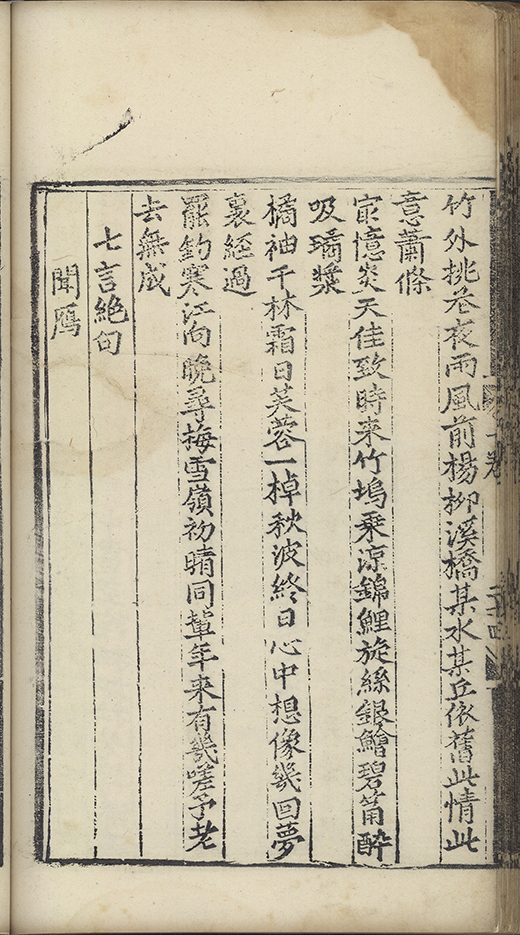 竹外桃花夜雨風前楊柳溪橋某水某丘依舊此情此
意蕭條
家憶炎天佳致時来竹塢乗凉錦鯉旋絲銀鱠碧筩酔
吸璚漿
橘柚千林霜日芙蓉一棹秋波終日心中想像幾回夢
裏經過
罷釣寒江向晚尋梅雪嶺初晴同輩年来有幾嗟予老
去無成
七言絕句
聞鴈